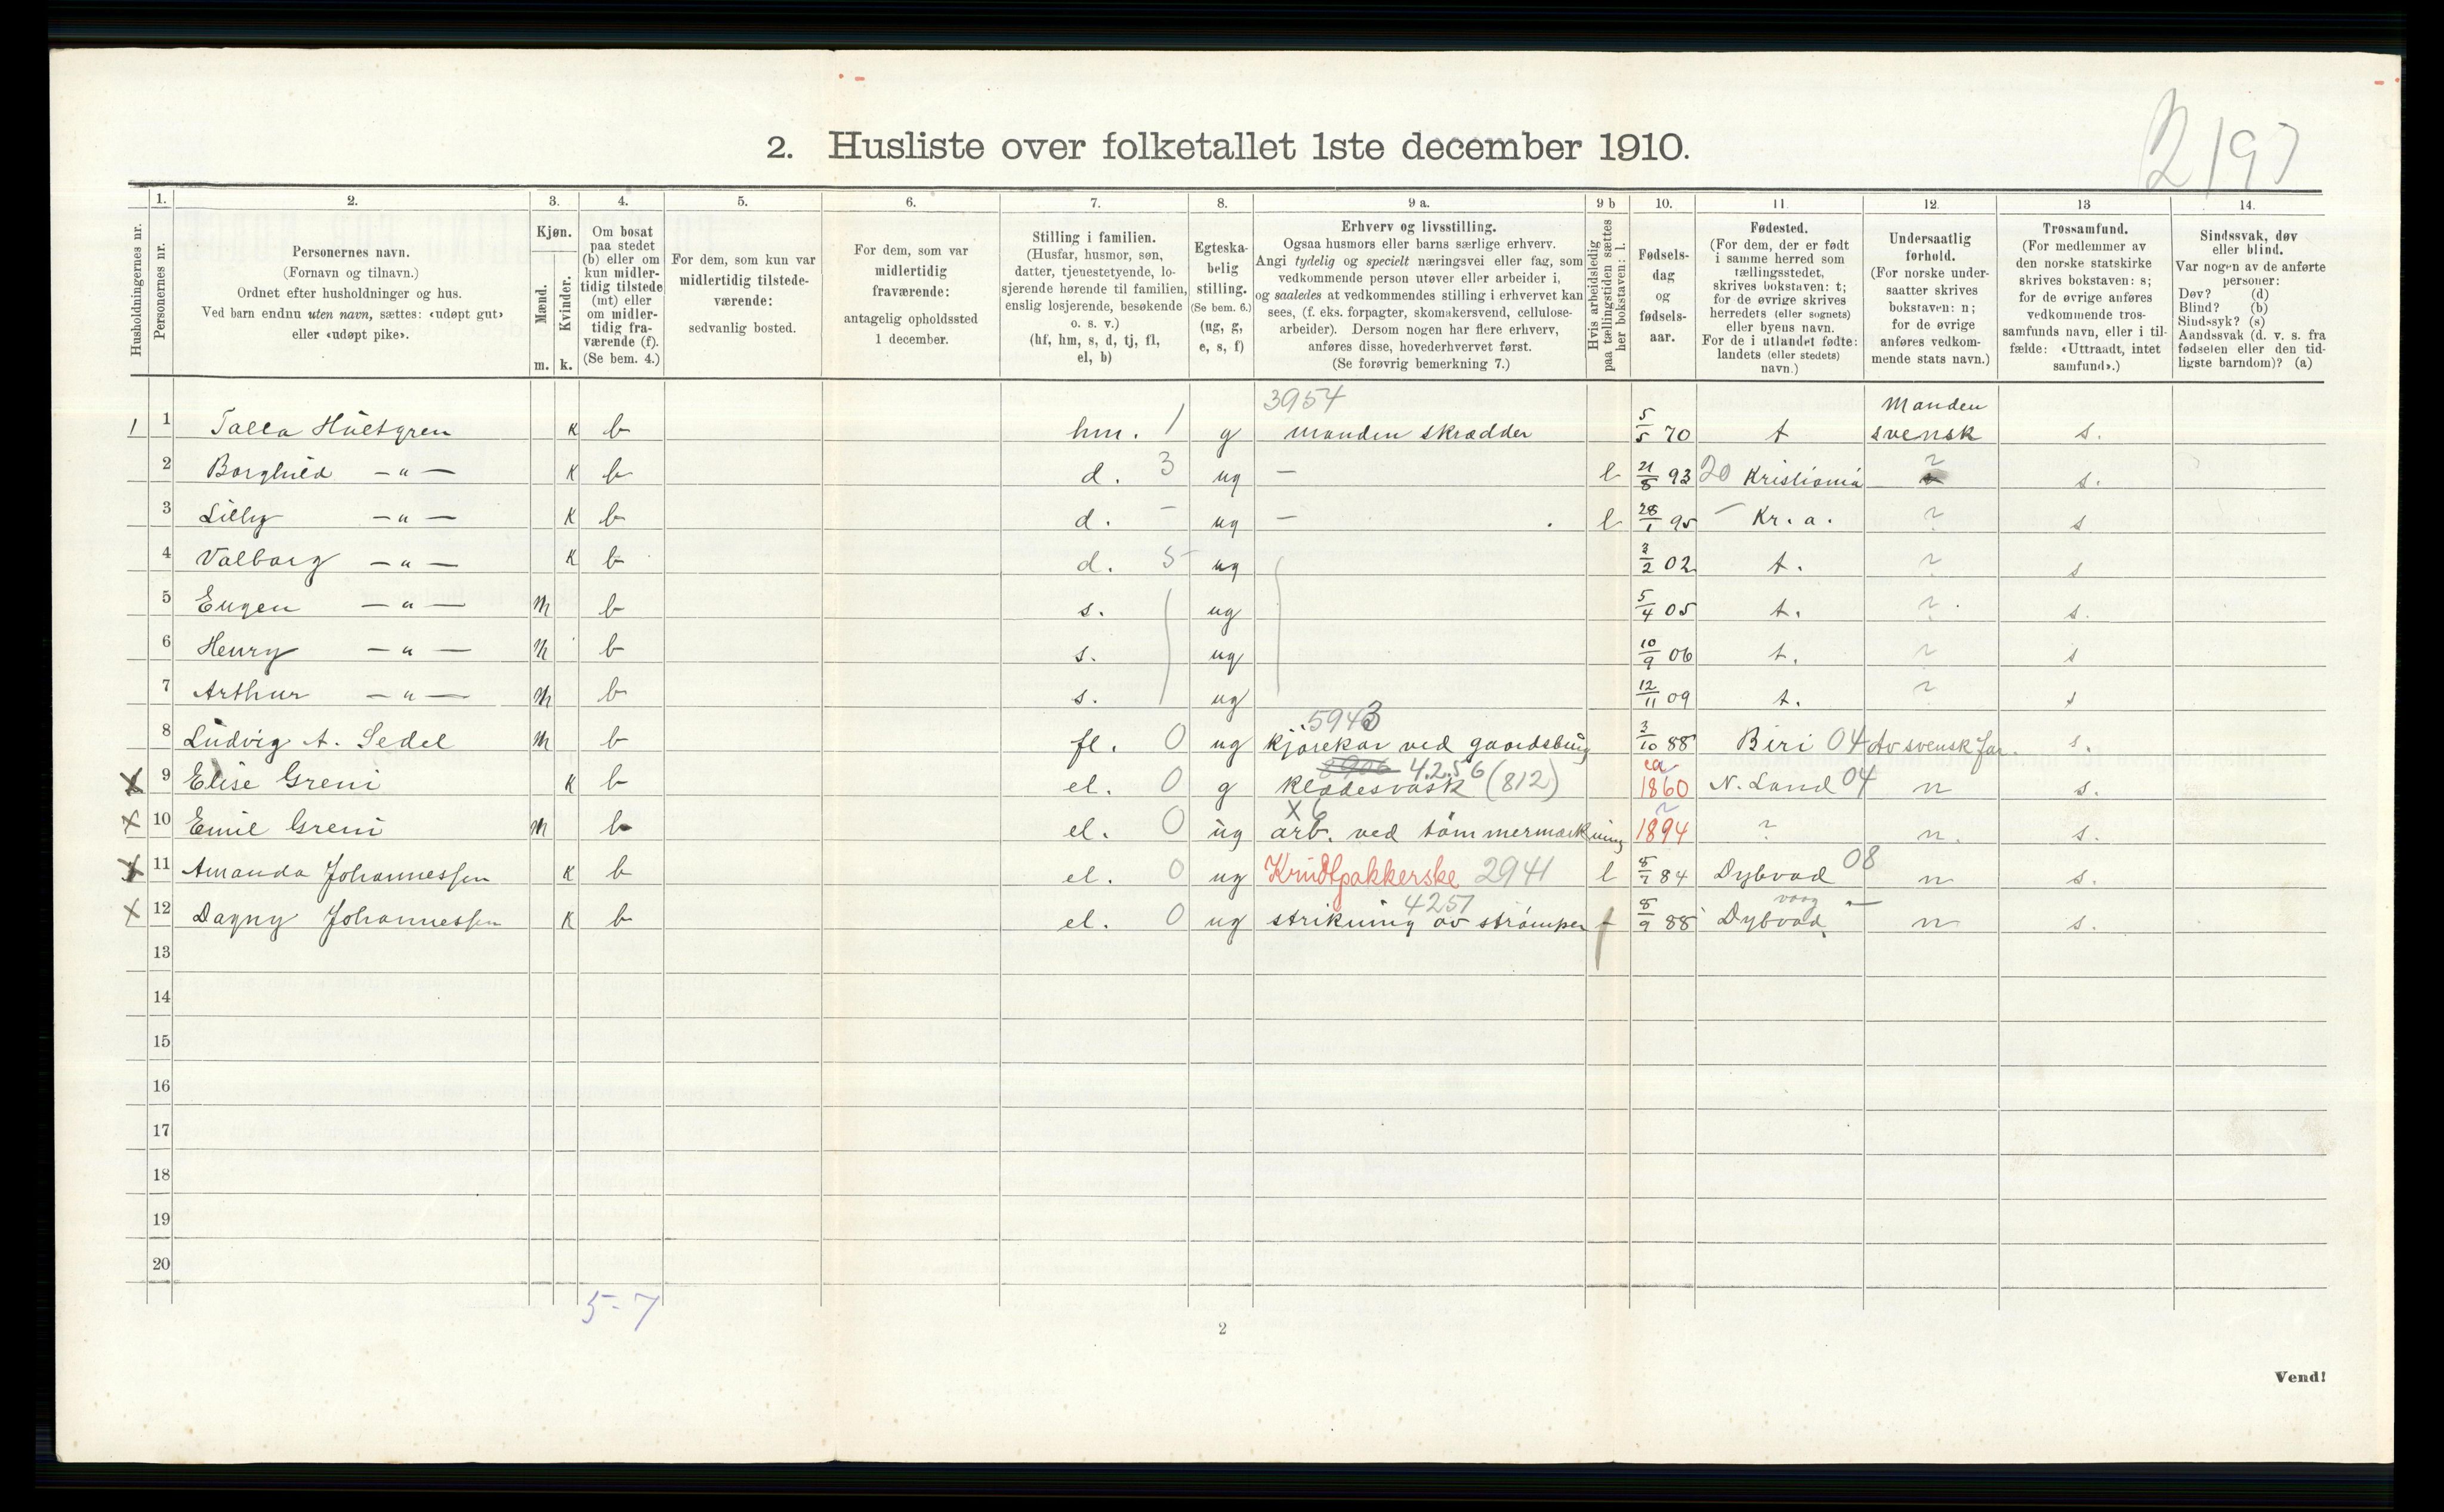 2197
2. Husliste over folketallet 1ste december 1910.
1. 2. 3. 4. 5. 6. 7. 8. 9 a. 9 b 10. 11. 12. 13 14.
Husholdningernes nr.
Personernes nr.
Personernes navn.
(Fornavn og tilnavn.)
Ordnet efter husholdninger og hus.
Ved barn endnu uten navn, sættes: «udøpt gut»
eller «udøpt pike».
Kjøn.
Mænd.
Kvinder.
m. k.
Om bosat
paa stedet
(b) eller om
kun midler-
tidig tilstede
(mt) eller
om midler-
tidig fra-
værende (f).
(Se bem. 4.)
For dem, som kun var
midlertidig tilstede-
værende:
sedvanlig bosted.
For dem, som var
midlertidig
fraværende:
antagelig opholdssted
1 december.
Stilling i familien.
(Husfar, husmor, søn,
datter, tjenestetyende, lo-
sjerende hørende til familien,
enslig losjerende, besøkende
o. s. v.)
(hf, hm, s, d, tj, fl,
el, b)
Egteska-
belig
stilling.
(Se bem. 6.)
(ug, g,
e, s, f)
Erhverv og livsstilling.
Ogsaa husmors eller barns særlige erhverv.
Angi tydelig og specielt næringsvei eller fag, som
vedkommende person utøver eller arbeider i,
og saaledes at vedkommendes stilling i erhvervet kan
sees, (f. eks. forpagter, skomakersvend, cellulose-
arbeider). Dersom nogen har flere erhverv,
anføres disse, hovederhvervet først.
(Se forøvrig bemerkning 7.)
Hvis arbeidsledig
paa tællingstiden sættes
her bokstaven: l.
Fødsels-
dag
og
fødsels-
aar.
Fødested.
(For dem, der er født
i samme herred som
tællingsstedet,
skrives bokstaven: t;
for de øvrige skrives
herredets (eller sognets)
eller byens navn.
For de i utlandet fødte:
landets (eller stedets)
navn.)
Undersaatlig
forhold.
(For norske under-
saatter skrives
bokstaven: n;
for de øvrige
anføres vedkom-
mende stats navn.)
Trossamfund.
(For medlemmer av
den norske statskirke
skrives bokstaven: s;
for de øvrige anføres
vedkommende tros-
samfunds navn, eller i til-
fælde: «Uttraadt, intet
samfund».)
Sindssvak, døv
eller blind.
Var nogen av de anførte
personer:
Døv? (d)
Blind? (b)
Sindssyk? (s)
Aandssvak (d. v. s. fra
fødselen eller den tid-
ligste barndom)? (a)
3954 Manden
1 1 Talla Hultgren k b hm. 1 g manden skrædder 5/5 70 t svensk s.
2 Borghild —"— k b d. 3 ug — l 21/8 93 20 Kristiania ? s.
3 Lilly —"— k b d. - ug — l 28/1 95 - Kr.a. ? s
4 Valborg —"— k b d. 5 ug 3/2 02 t. ? s
5 Eugen —"— m b s. ug 5/4 05 t. ? s.
6 Henry —"— m b s. ug 10/9 06 t. ? s
7 Arthur —"— m b s. ug 12/11 09 t. ? s
5943
8 Ludvig A. Sedel m b fl. 0 ug kjørekar ved gaardsbrug 3/10 88 Biri 04 Av svensk far. s.
4256 ca
x 9 Elise Greni k b el. 0 g klædesvask (812) 1860 N. Land 04 n s.
X6
x 10 Emil Greni m b el. 0 ug arb. ved tømmermerkning 1894 ? n. s.
x 11 Amanda Johannessen k b el. 0 ug Krudtpakkerske 2941 l 5/7 84 Dybvad 08 n s.
4257 vaag
x 12 Dagny Johannessen k b el. 0 ug strikning av strømper 8/9 88 Dybvad — n s.
13
14
15
16
17
18
19
20
5-7
2
Vend!